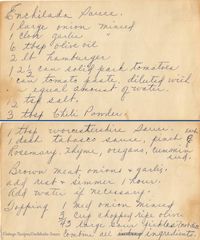 Enchilada Sauce.
1 large onion minced
1 clove garlic "
6 tbsp olive oil
2 lb hamburger
1 2½ can solid pack tomatoes
1 can tomato paste, diluted with
an equal amount of water.
2 tsp salt.
3 tbsp Chile Powder.
1 tbsp worcestershire sauce.
1 dash tabasco sauce, pinch
Rosemary, thyme, oregano, cummin
Brown meat, onions & garlic.
add rest & simmer 1 hour.
Add water if necessary.
Topping 1 med onion minced
2 cup chopped ripe olives
#3 large
Combine all ingredients.